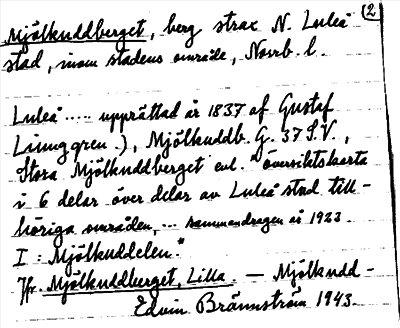 (2
Mjölkuddberget, berg strax N. Luleå
stad, inom stadens område, Norrb. l.
Luleå ..... upprättad år 1837 af Gustaf
Ljunggren.), Mjölkuddb. G. 37 S.V.,
Stora Mjölkuddberget enl. "Översiktskarta
i 6 delar över delar av Luleå stad till-
höriga områden, ... sammandragen år 1923.
I: Mjölkuddelen."
Jfr. Mjölkuddberget, Lilla. — Mjölkudd-
Edvin Brännström 1943.